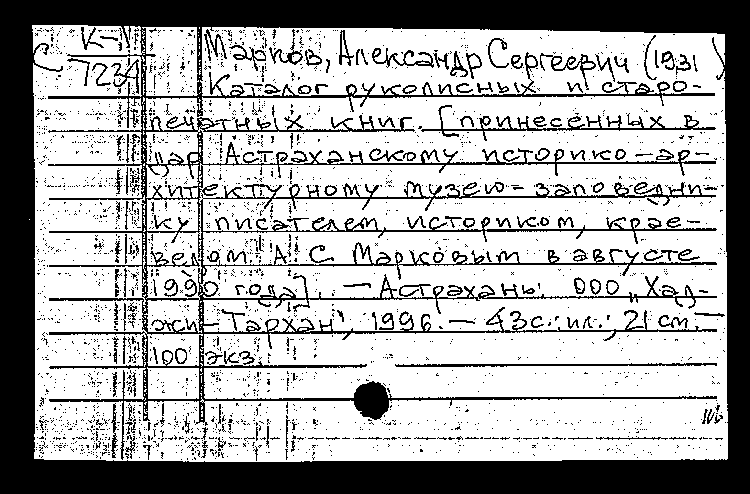 С К-1
7234
Марков, Александр Сергеевич (1931 )
Каталог рукописных и старо-
печатных книг. [принесенных в
дар Астраханскому историко-ар-
хитектурному музею-заповедни-
ку писателем, историком, крае-
ведом А. С Марковым в августе
1990 года]. — Астрахань: ООО „Хад-
жи-Тархан", 1996. — 43 с.: ил.; 21 см. —
100 экз.